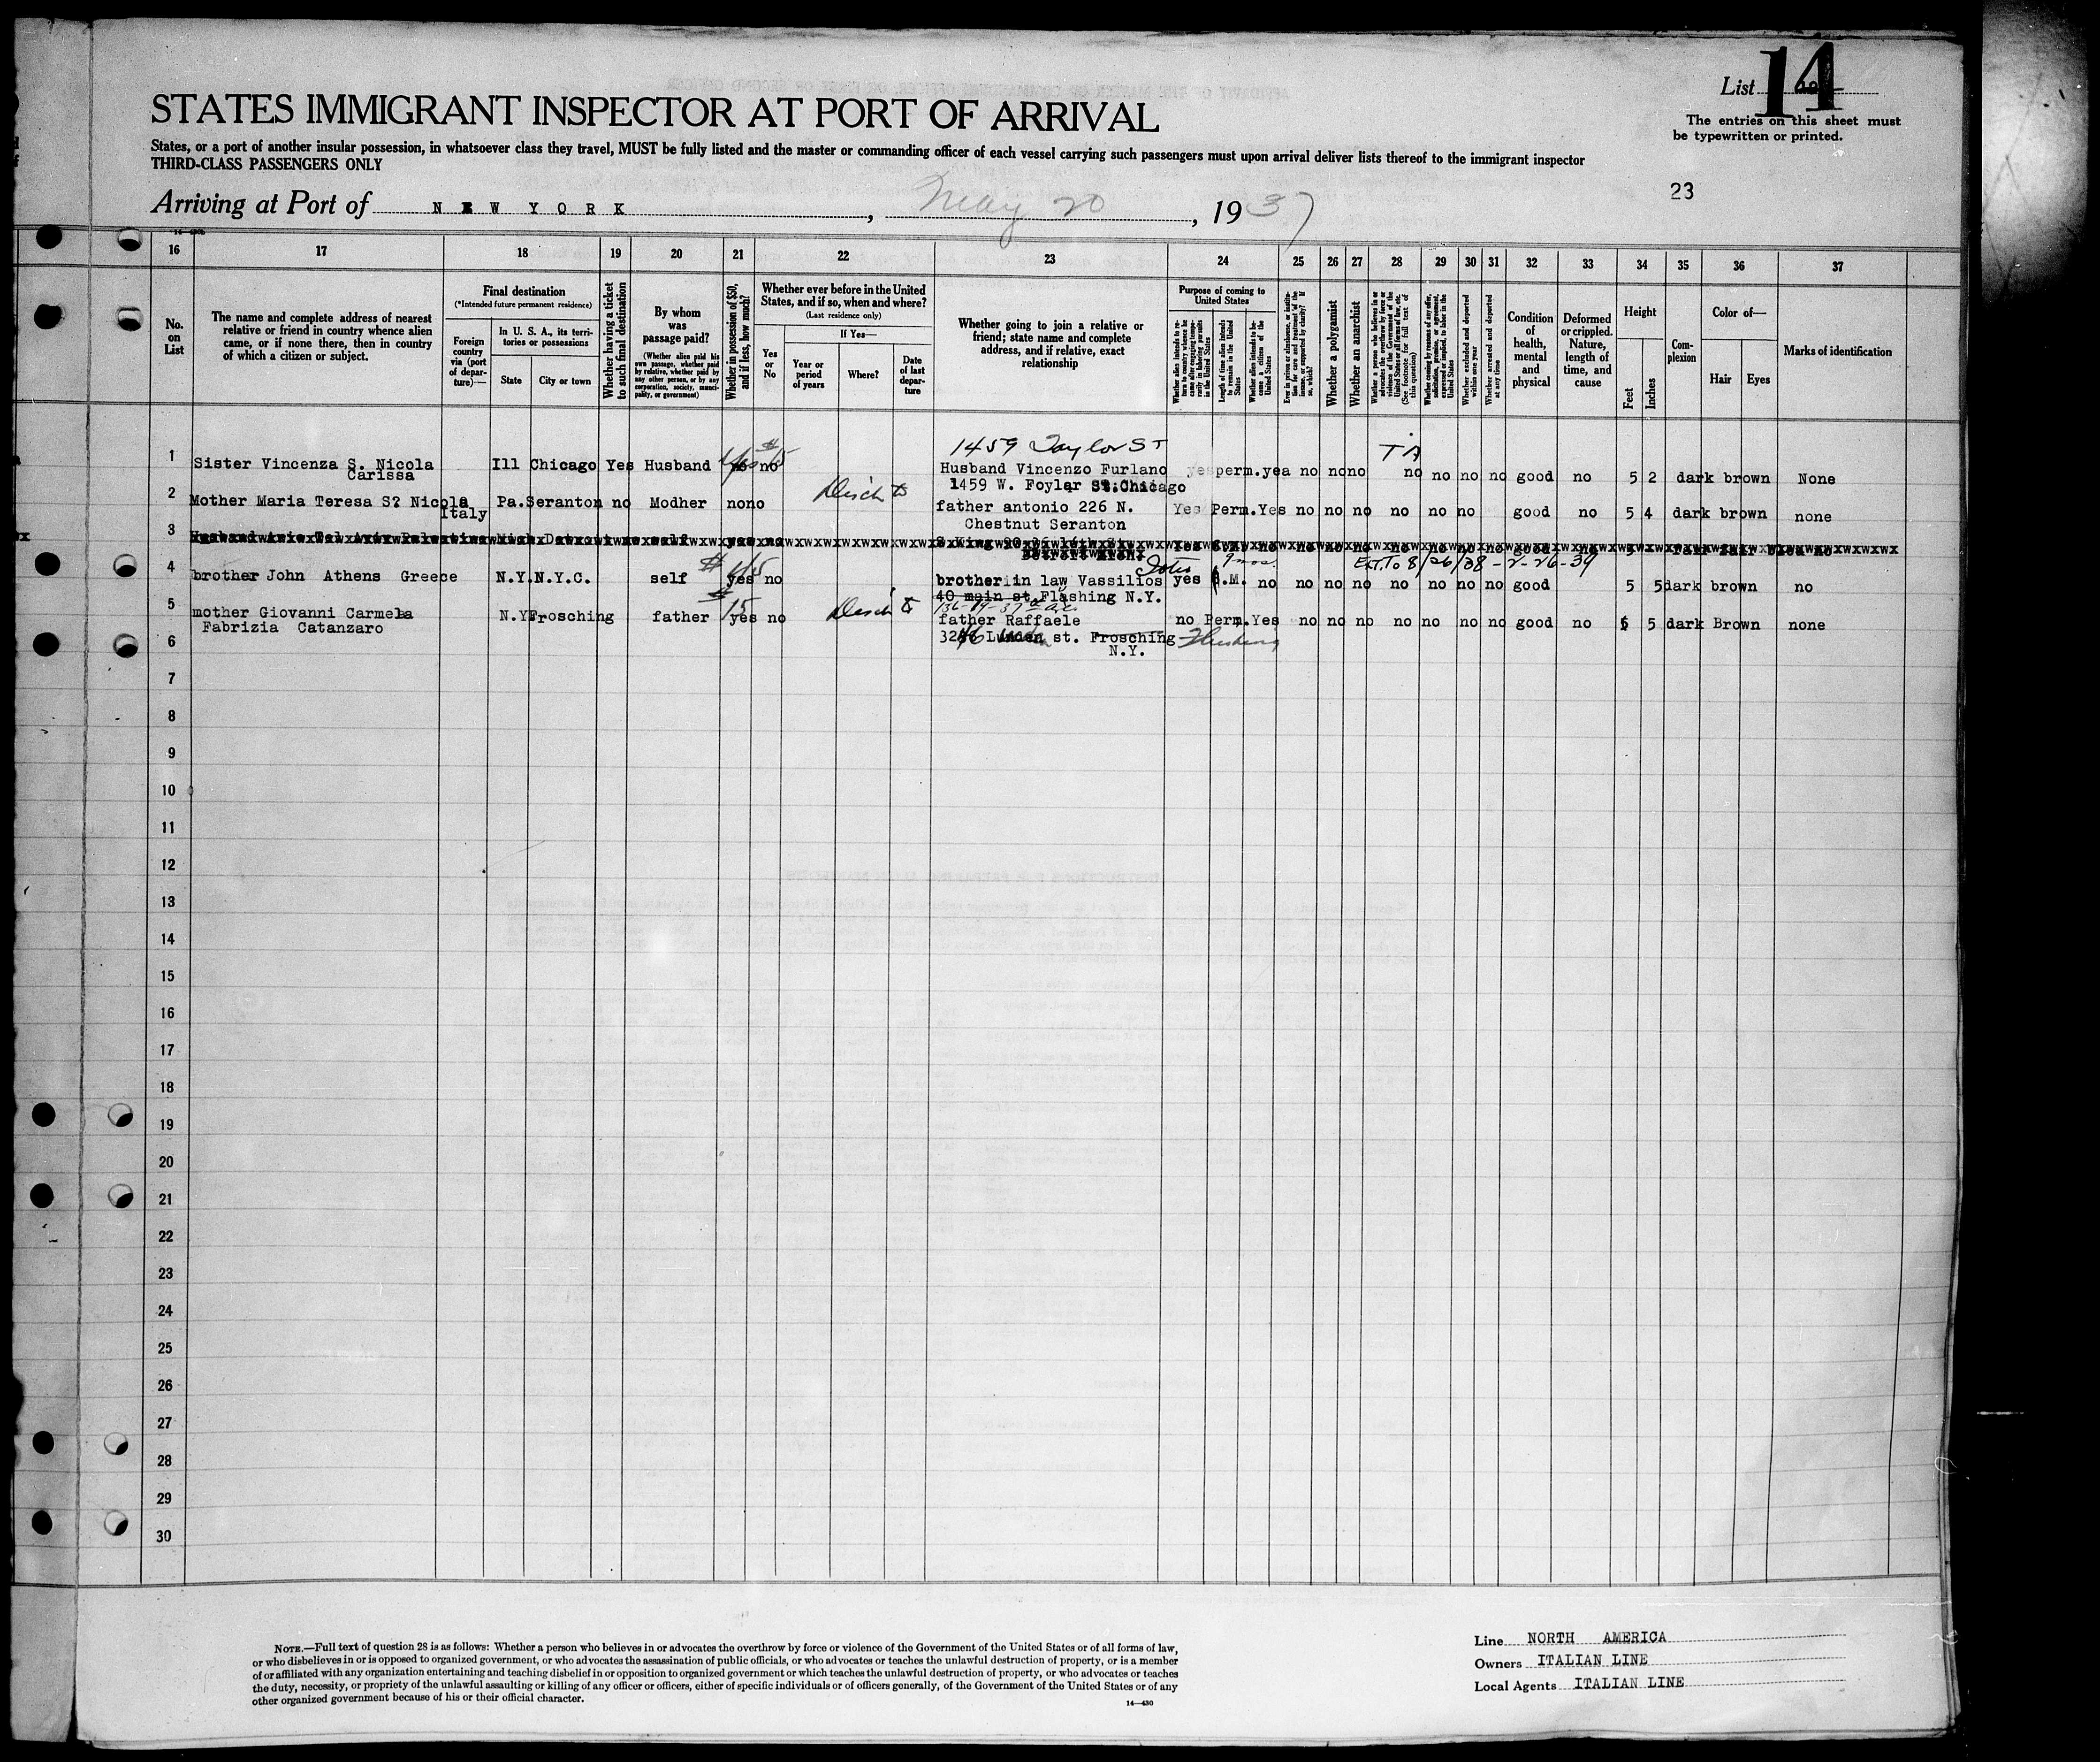 List 14
The entries on this sheet must
be typewritten or printed.
STATES IMMIGRANT INSPECTOR AT PORT OF ARRIVAL
States, or a port of another insular possession, in whatsoever class they travel, MUST be fully listed and the master or commanding officer of each vessel carrying such passengers must upon arrival deliver lists thereof to the immigrant inspector
THIRD-CLASS PASSENGERS ONLY
23
Arriving at Port of NEW YORK, May 20, 1937
16 17 18 19 20 21 22 23 24 25 26 27 28 29 30 31 32 33 34 35 36 37
No.
on
List
The name and complete address of nearest
relative or friend in country whence alien
came, or if none there, then in country
of which a citizen or subject.
Final destination
(*Intended future permanent residence)
Foreign
country
via (port
of depar-
ture)—
In U. S. A., its terri-
tories or possessions
State City or town
Whether having a ticket
to such final destination
By whom
was
passage paid?
(Whether alien paid his
own passage, whether paid
by relative, whether paid by
any other person, or by any
corporation, society, munici-
pality, or government)
Whether in possession of $50,
and if less, how much?
Whether ever before in the United
States, and if so, when and where?
(Last residence only)
Yes
or
No
If Yes—
Year or
period
of years
Where?
Date
of last
depar-
ture
Whether going to join a relative or
friend; state name and complete
address, and if relative, exact
relationship
Purpose of coming to
United States
Whether alien intends to re-
turn to country whence he
came after engaging tempo-
rarily in laboring pursuits
in the United States
Length of time alien intends
to remain in the United
States
Whether alien intends to be-
come a citizen of the
United States
Ever in prison or almshouse, or institu-
tion for care and treatment of the
insane, or supported by charity? If
so, which?
Whether a polygamist
Whether an anarchist
Whether a person who believes in or
advocates the overthrow by force or
violence of the Government of the
United States or all forms of law, etc.
(See footnote for full text of
this question)
Whether coming by reason of any offer,
solicitation, promise, or agreement,
expressed or implied, to labor in the
United States
Whether excluded and deported
within one year
Whether arrested and deported
at any time
Condition
of
health,
mental
and
physical
Deformed
or crippled.
Nature,
length of
time, and
cause
Height
Feet Inches
Com-
plexion
Color of—
Hair Eyes
Marks of identification
1459 Taylor St
1 Sister Vincenza S. Nicola Ill Chicago Yes Husband no no Husband Vincenzo Furlano yes perm. yea no no no no no no no good no 5 2 dark brown None
Carissa 1459 W. Foylar St. Chicago
2 Mother Maria Teresa S? Nicola Pa. Seranton no Modher no no father antonio 226 N. Yes Perm. Yes no no no no no no good no 5 4 dark brown none
Italy Chestnut Seranton
3
Ext. To 8/26/38 - 2-26-39
4 brother John Athens Greece N.Y. N.Y.C. self yes no brother in law Vassilios yes 6.M. no no no no no no no no good 5 5 dark brown no
40 main st. Flashing N.Y.
136-19-37th Ave
5 mother Giovanni Carmela N.Y. Frosching father yes no father Raffaele no Perm. Yes no no no no no no no good no 5 5 dark Brown none
Fabrizia Catanzaro st. Frosching Flushing
N.Y.
6
7
8
9
10
11
12
13
14
15
16
17
18
19
20
21
22
23
24
25
26
27
28
29
30
NOTE.—Full text of question 28 is as follows: Whether a person who believes in or advocates the overthrow by force or violence of the Government of the United States or of all forms of law,
or who disbelieves in or is opposed to organized government, or who advocates the assassination of public officials, or who advocates or teaches the unlawful destruction of property, or is a member
of or affiliated with any organization entertaining and teaching disbelief in or opposition to organized government or which teaches the unlawful destruction of property, or who advocates or teaches
the duty, necessity, or propriety of the unlawful assaulting or killing of any officer or officers, either of specific individuals or of officers generally, of the Government of the United States or of any
other organized government because of his or their official character.
14—430
Line NORTH AMERICA
Owners ITALIAN LINE
Local Agents ITALIAN LINE